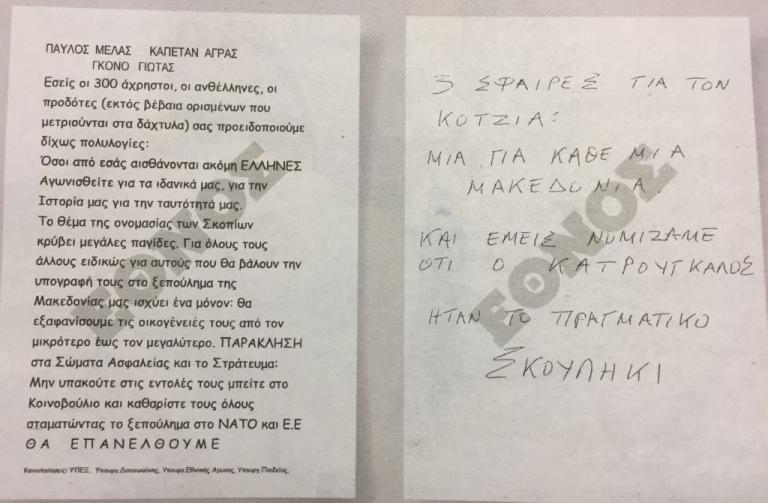 ΠΑΥΛΟΣ ΜΕΛΑΣ ΚΑΠΕΤΑΝ ΑΓΡΑΣ
ΓΚΟΝΟ ΓΙΩΤΑΣ
Εσείς οι 300 άχρηστοι, οι ανθέλληνες, οι
προδότες (εκτός βέβαια ορισμένων που
μετριούνται στα δάχτυλα) σας προειδοποιούμε
δίχως πολυλογίες:
Όσοι από εσάς αισθάνονται ακόμη ΕΛΛΗΝΕΣ
Αγωνισθείτε για τα ιδανικά μας, για την
Ιστορία μας για την ταυτότητά μας.
Το θέμα της ονομασίας των Σκοπίων
κρύβει μεγάλες παγίδες. Για όλους τους
άλλους ειδικώς για αυτούς που θα βάλουν την
υπογραφή τους στο ξεπούλημα της
Μακεδονίας μας ισχύει ένα μόνον: θα
εξαφανίσουμε τις οικογένειές τους από τον
μικρότερο έως τον μεγαλύτερο. ΠΑΡΑΚΛΗΣΗ
στα Σώματα Ασφαλείας και το Στράτευμα:
Μην υπακούτε στις εντολές τους μπείτε στο
Κοινοβούλιο και καθαρίστε τους όλους
σταματώντας το ξεπούλημα στο ΝΑΤΟ και Ε.Ε
ΘΑ ΕΠΑΝΕΛΘΟΥΜΕ
Κοινοποιήσεις: ΥΠΕΞ, Υπουργ.Δικαιοσύνης, Υπουργ.Εθνικής Αμυνας, Υπουργ.Παιδείας,
ΕΘΝΟΣ
3 ΣΦΑΙΡΕΣ ΓΙΑ ΤΟΝ
ΚΟΤΖΙΑ:
ΜΙΑ ΓΙΑ ΚΑΘΕ ΜΙΑ
ΜΑΚΕΔΟΝΙΑ.
ΚΑΙ ΕΜΕΙΣ ΝΟΜΙΖΑΜΕ
ΟΤΙ Ο ΚΑΤΡΟΥΓΚΑΛΟΣ
ΗΤΑΝ ΤΟ ΠΡΑΓΜΑΤΙΚΟ
ΣΚΟΥΛΗΚΙ
ΕΘΝΟΣ